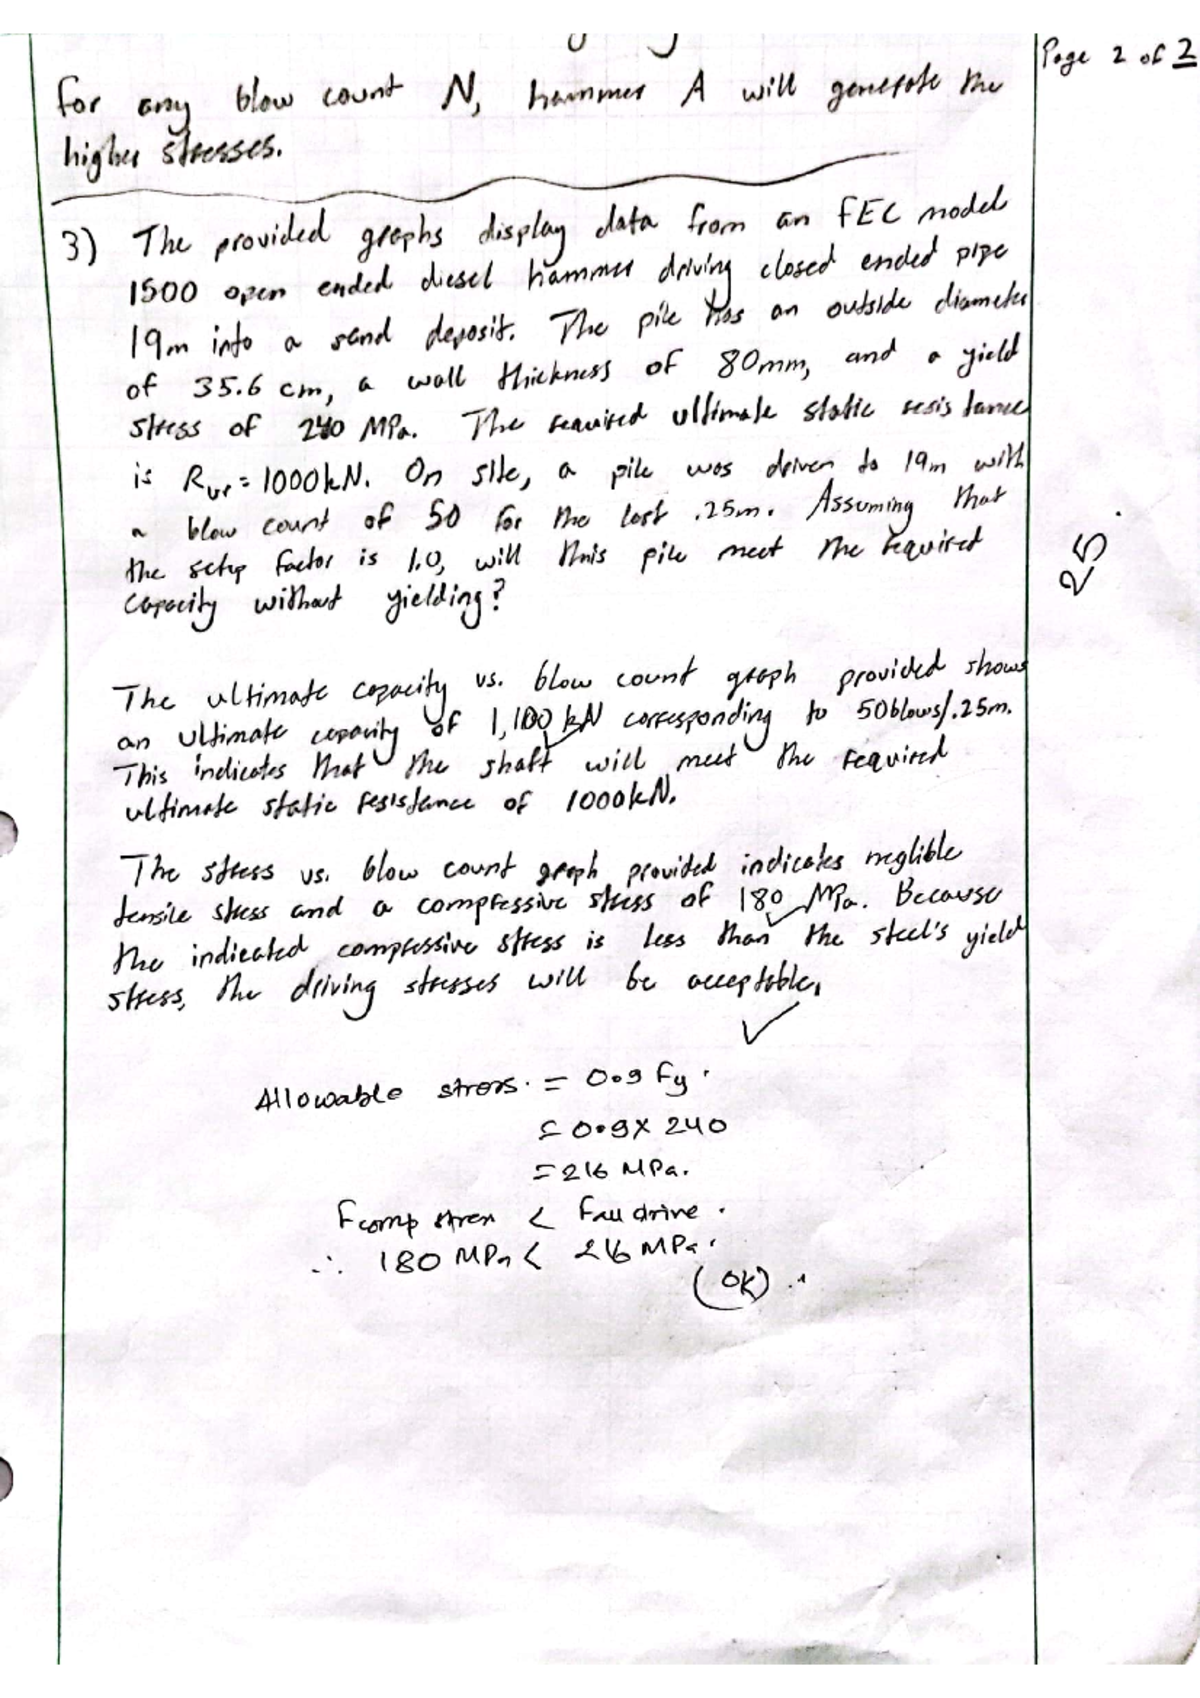 Page 2 of 2
for any blow count N, hammer A will generate the
higher stresses.
3) The provided graphs display data from an FEC model
1500 open ended diesel hammer driving closed ended pipe
19m into a sand deposit. The pile has an outside diameter
of 35.6 cm, a wall thickness of 80mm, and a yield
stress of 240 MPa. The required ultimate static resistance
is Rur = 1000kN. On site, a pile was driven to 19m with
a blow count of 50 for the last .25m. Assuming that
the setup factor is 1.0, will this pile meet the required
capacity without yielding?
25
The ultimate capacity vs. blow count graph provided shows
an ultimate capacity of 1,100 kN corresponding to 50blows/.25m.
This indicates that the shaft will meet the required
ultimate static resistance of 1000kN.
The stress vs. blow count graph provided indicates neglible
tensile stress and a compressive stress of 180 MPa. Because
the indicated compressive stress is less than the steel's yield
stress, the driving stresses will be acceptable.
Allowable stress. = 0.9 Fy.
= 0.9 X 240
= 216 MPa.
Fcomp stress < Fall drive.
∴ 180 MPa < 216 MPa.
(OK).